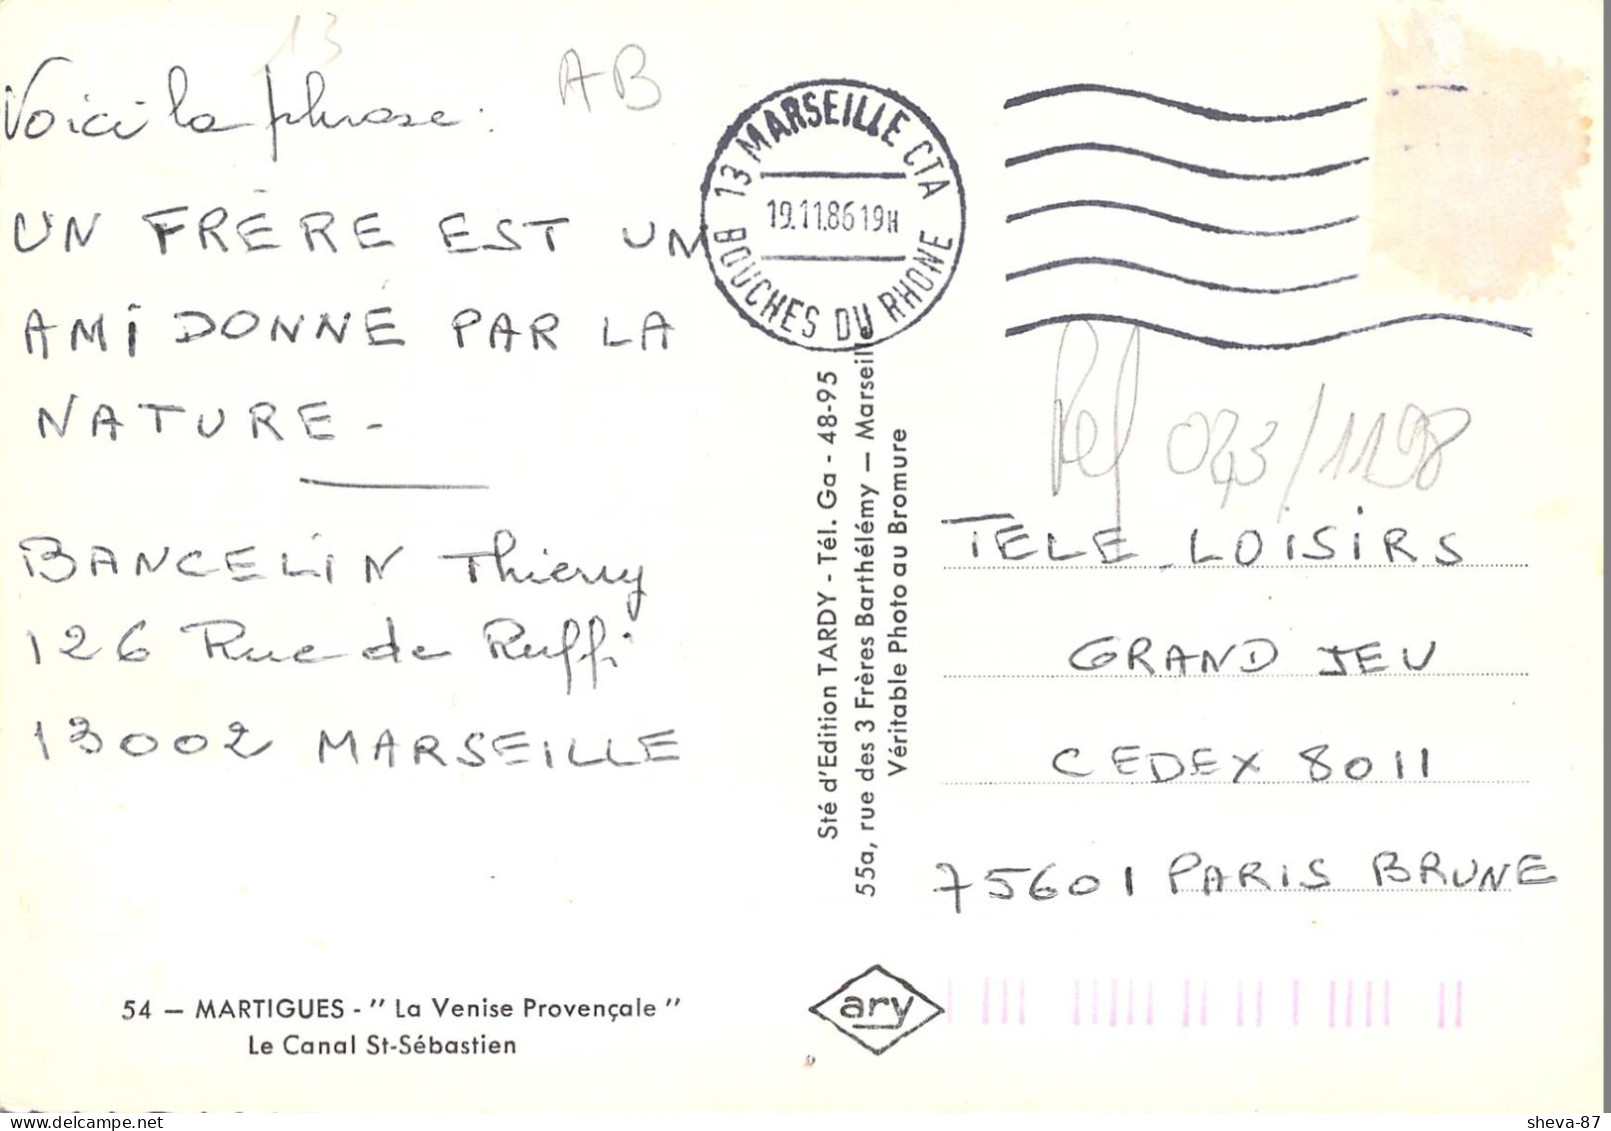 13
AB
Voici la phrase :
UN FRÈRE EST UN
AMI DONNÉ PAR LA
NATURE -
BANCELIN Thierry
126 Rue de Ruffi
13002 MARSEILLE
54 — MARTIGUES - " La Venise Provençale "
Le Canal St-Sébastien
13 MARSEILLE CTA
19.11.86 19H
BOUCHES DU RHONE
Sté d'Edition TARDY - Tél. Ga - 48-95
55a, rue des 3 Frères Barthélémy — Marseille
Véritable Photo au Bromure
ary
Ref 043/1198
TELE-LOISIRS
GRAND JEU
CEDEX 8011
75601 PARIS BRUNE
sheva-87